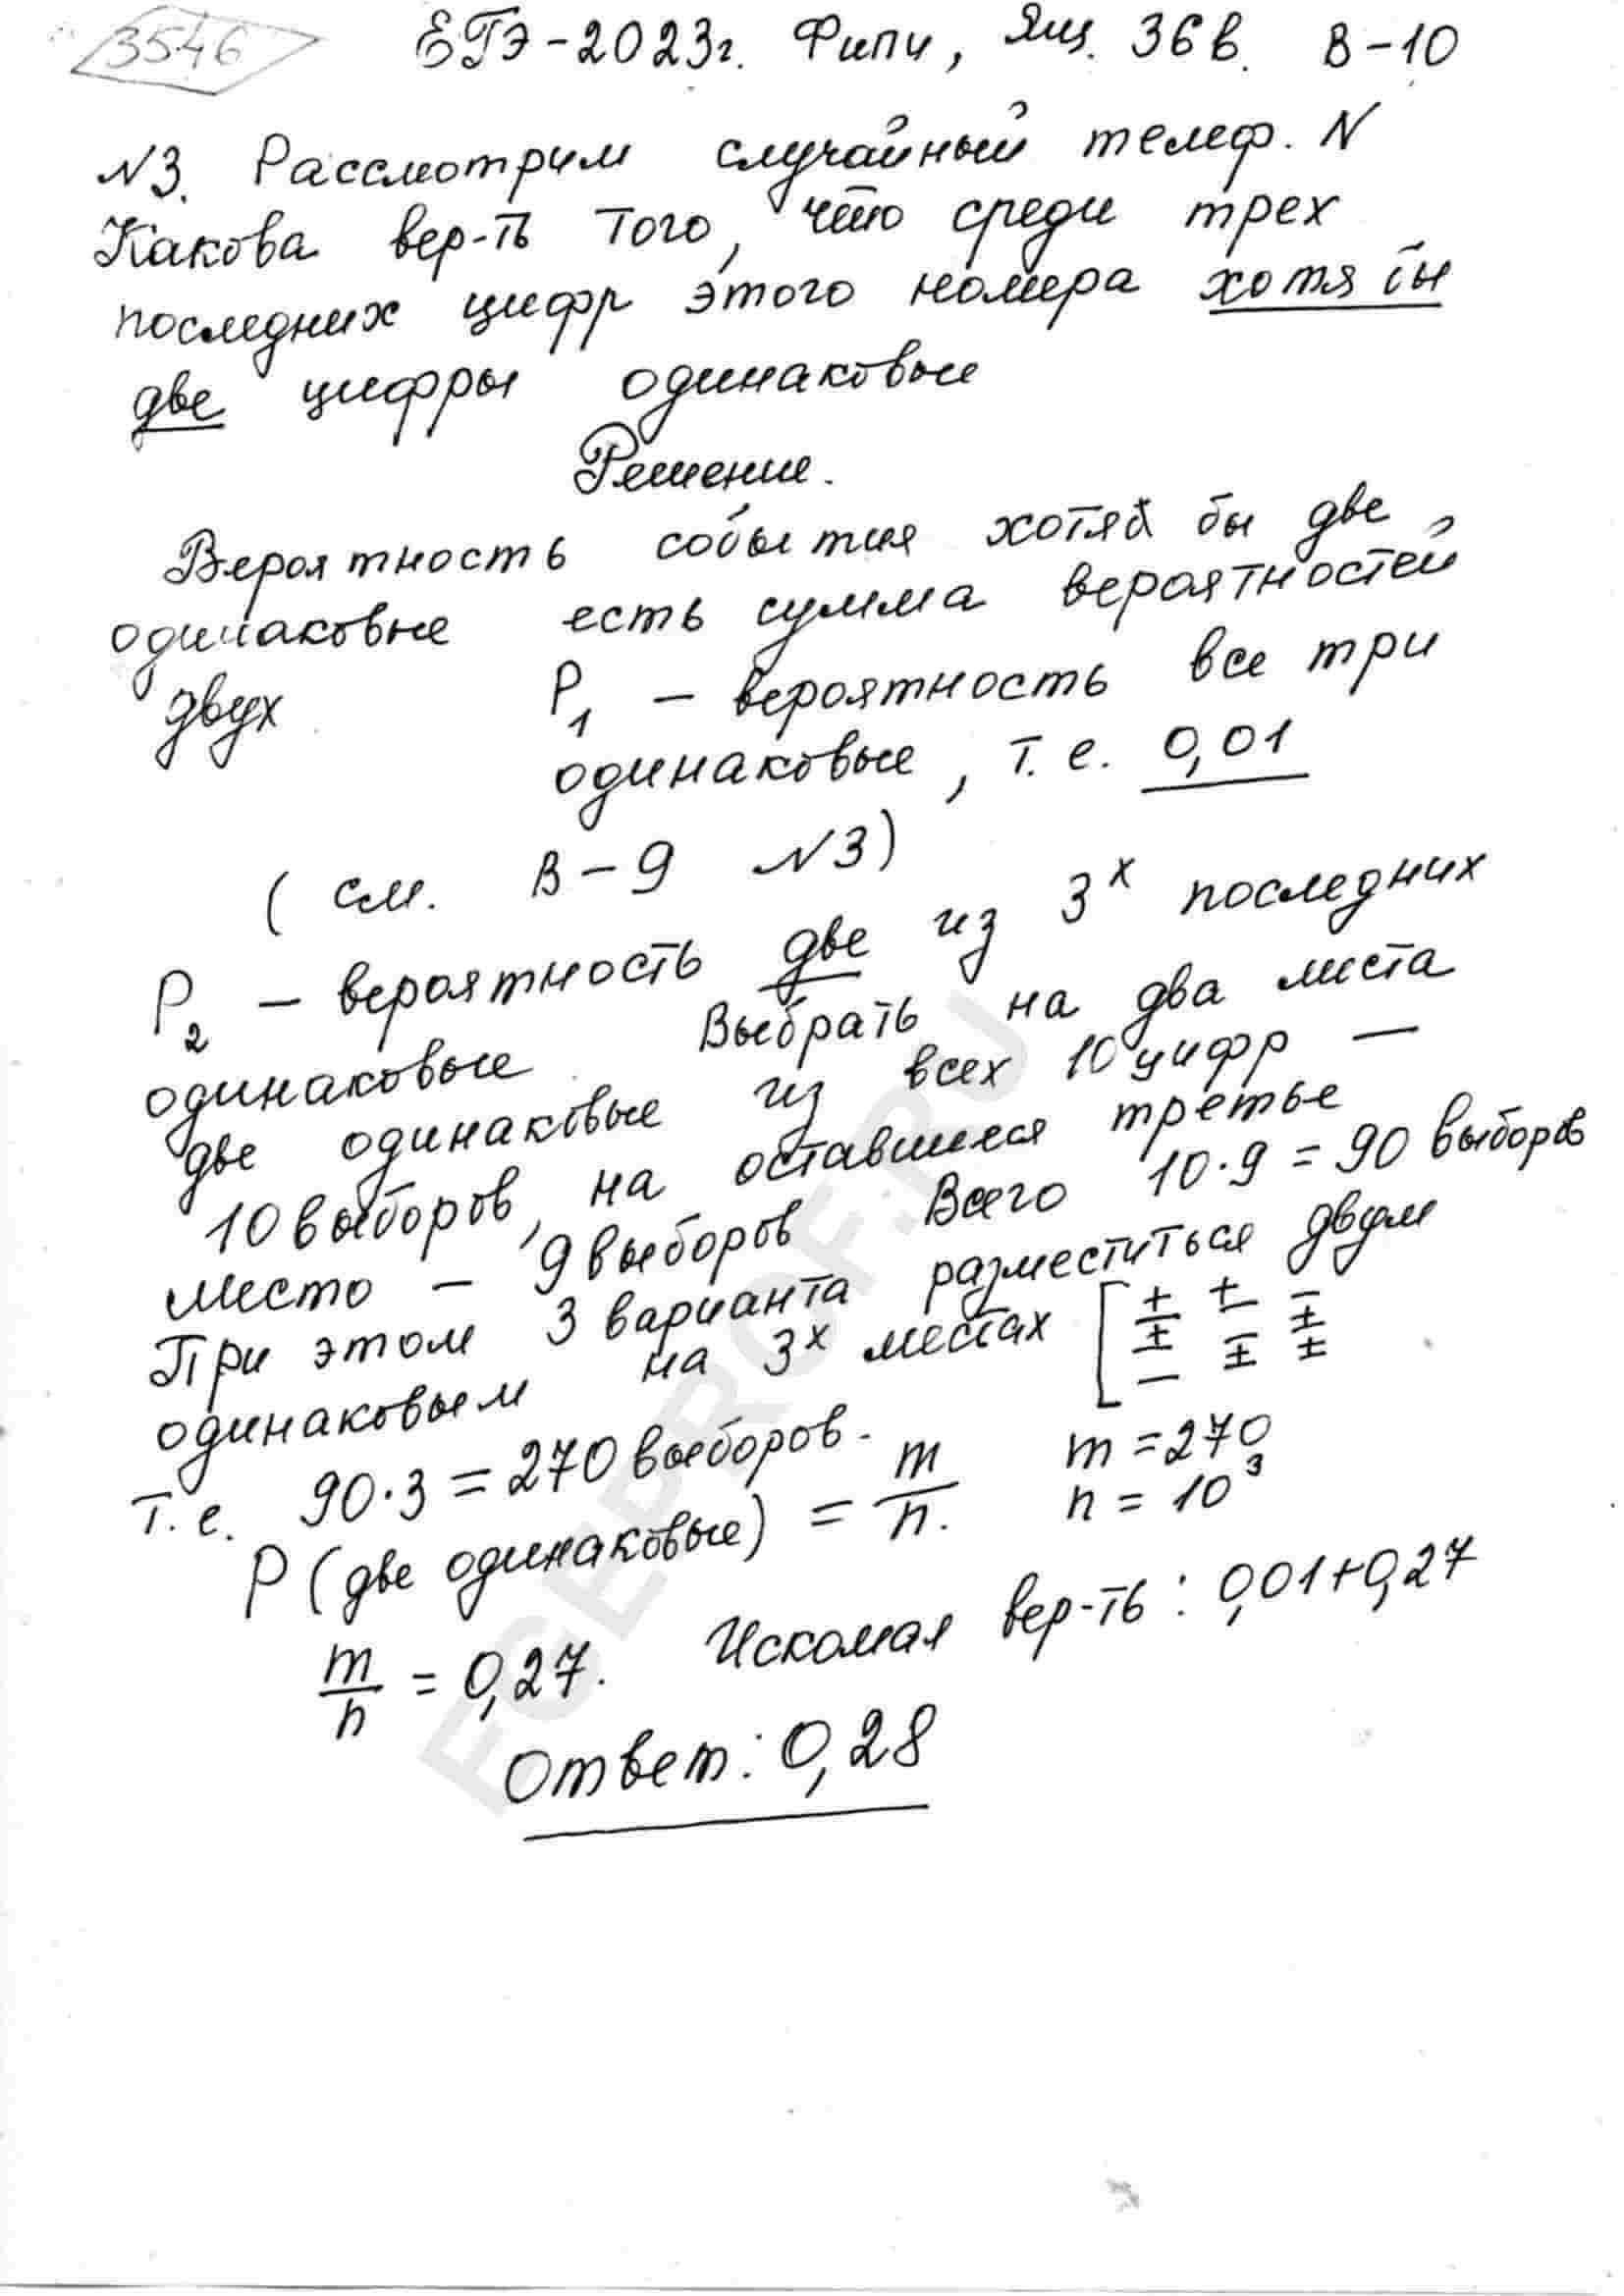 3546
ЕГЭ-2023г. Фипи, Ящ. 36в. В-10
N3. Рассмотрим случайный телеф. N
Какова вер-ть того, что среди трех
последних цифр этого номера хотя бы
две цифры одинаковые
Решение.
Вероятность события хотя бы две
одинаковые есть сумма вероятностей
двух P1 – вероятность все три
одинаковые, т. е. 0,01
(см. В-9 N3)
P2 – вероятность две из 3х последних
одинаковые. Выбрать на два места
две одинаковые из всех 10 цифр –
10 выборов, на оставшееся третье
место – 9 выборов Всего 10·9 = 90 выборов
При этом 3 варианта разместиться двум
одинаковым на 3х местах [ + + –
± – ±
– ± ±
т. е. 90·3 = 270 выборов.
P (две одинаковые) = m/n. m = 270
n = 10³
m/n = 0,27. Искомая вер-ть: 0,01+0,27
Ответ: 0,28
EGEPROF.RU